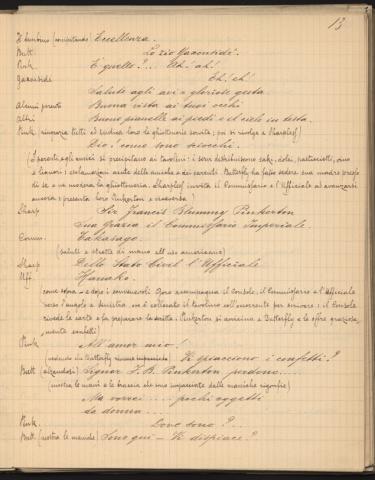 13
Il bambino (annusandosi) Eccellenza.
Butt. Lo zio Yaconsidé.
Pink. È quello?... Ah! ah!
Yaconsidé Eh! eh!
Salute agli avi e gloriose gesta.
Alcuni parenti Buona vista ai tuoi occhi
Altri Buone pianelle ai piedi e il cielo in testa.
Pink (ringrazia tutti ed indica loro le ghiottonerie servite; poi si rivolge a Sharpless)
Dio! come sono sciocchi.
(I parenti, gli amici si precipitano ai tavolini: i servi distribuiscono saki, dolci, pasticcetti, vino
e liquori: esclamazioni avide delle amiche e dei parenti. Butterfly ha fatto sedere sua madre presso
di sé e ne modera la ghiottoneria. Sharpless invita il Commissario e l'Ufficiale ad avanzarsi
ancora; presenta loro Pinkerton e viceversa)
Sharp. Sir Francis Blummy Pinkerton
Sua Grazia il Commissario Imperiale.
Comm. Takasago.
(saluti e strette di mano all'uso americano)
Sharp Dello Stato Civil l'Ufficiale
Uff. Hanako.
come sopra - e dopo i convenevoli Goro accompagna il Console, il Commissario e l'Ufficiale
verso l'angolo a sinistra, ove è collocato il tavolino coll'occorrente per scrivere: il Console
rivede le carte e fa preparare la scritta: Pinkerton si avvicina a Butterfly e le offre graziosa,
mente confetti)
Pink. All'amor mio!
(vedendo che Butterfly rimane impacciata) Vi spiacciono i confetti?
Butt (alzandosi) Signor F. B. Pinkerton perdono....
(mostra le mani e le braccia che sono impacciate dalle maniche rigonfie)
Ma vorrei.... pochi oggetti
da donna...
Pink. Dove sono?...
Butt. (mostra le maniche) Sono qui - Vi dispiace?